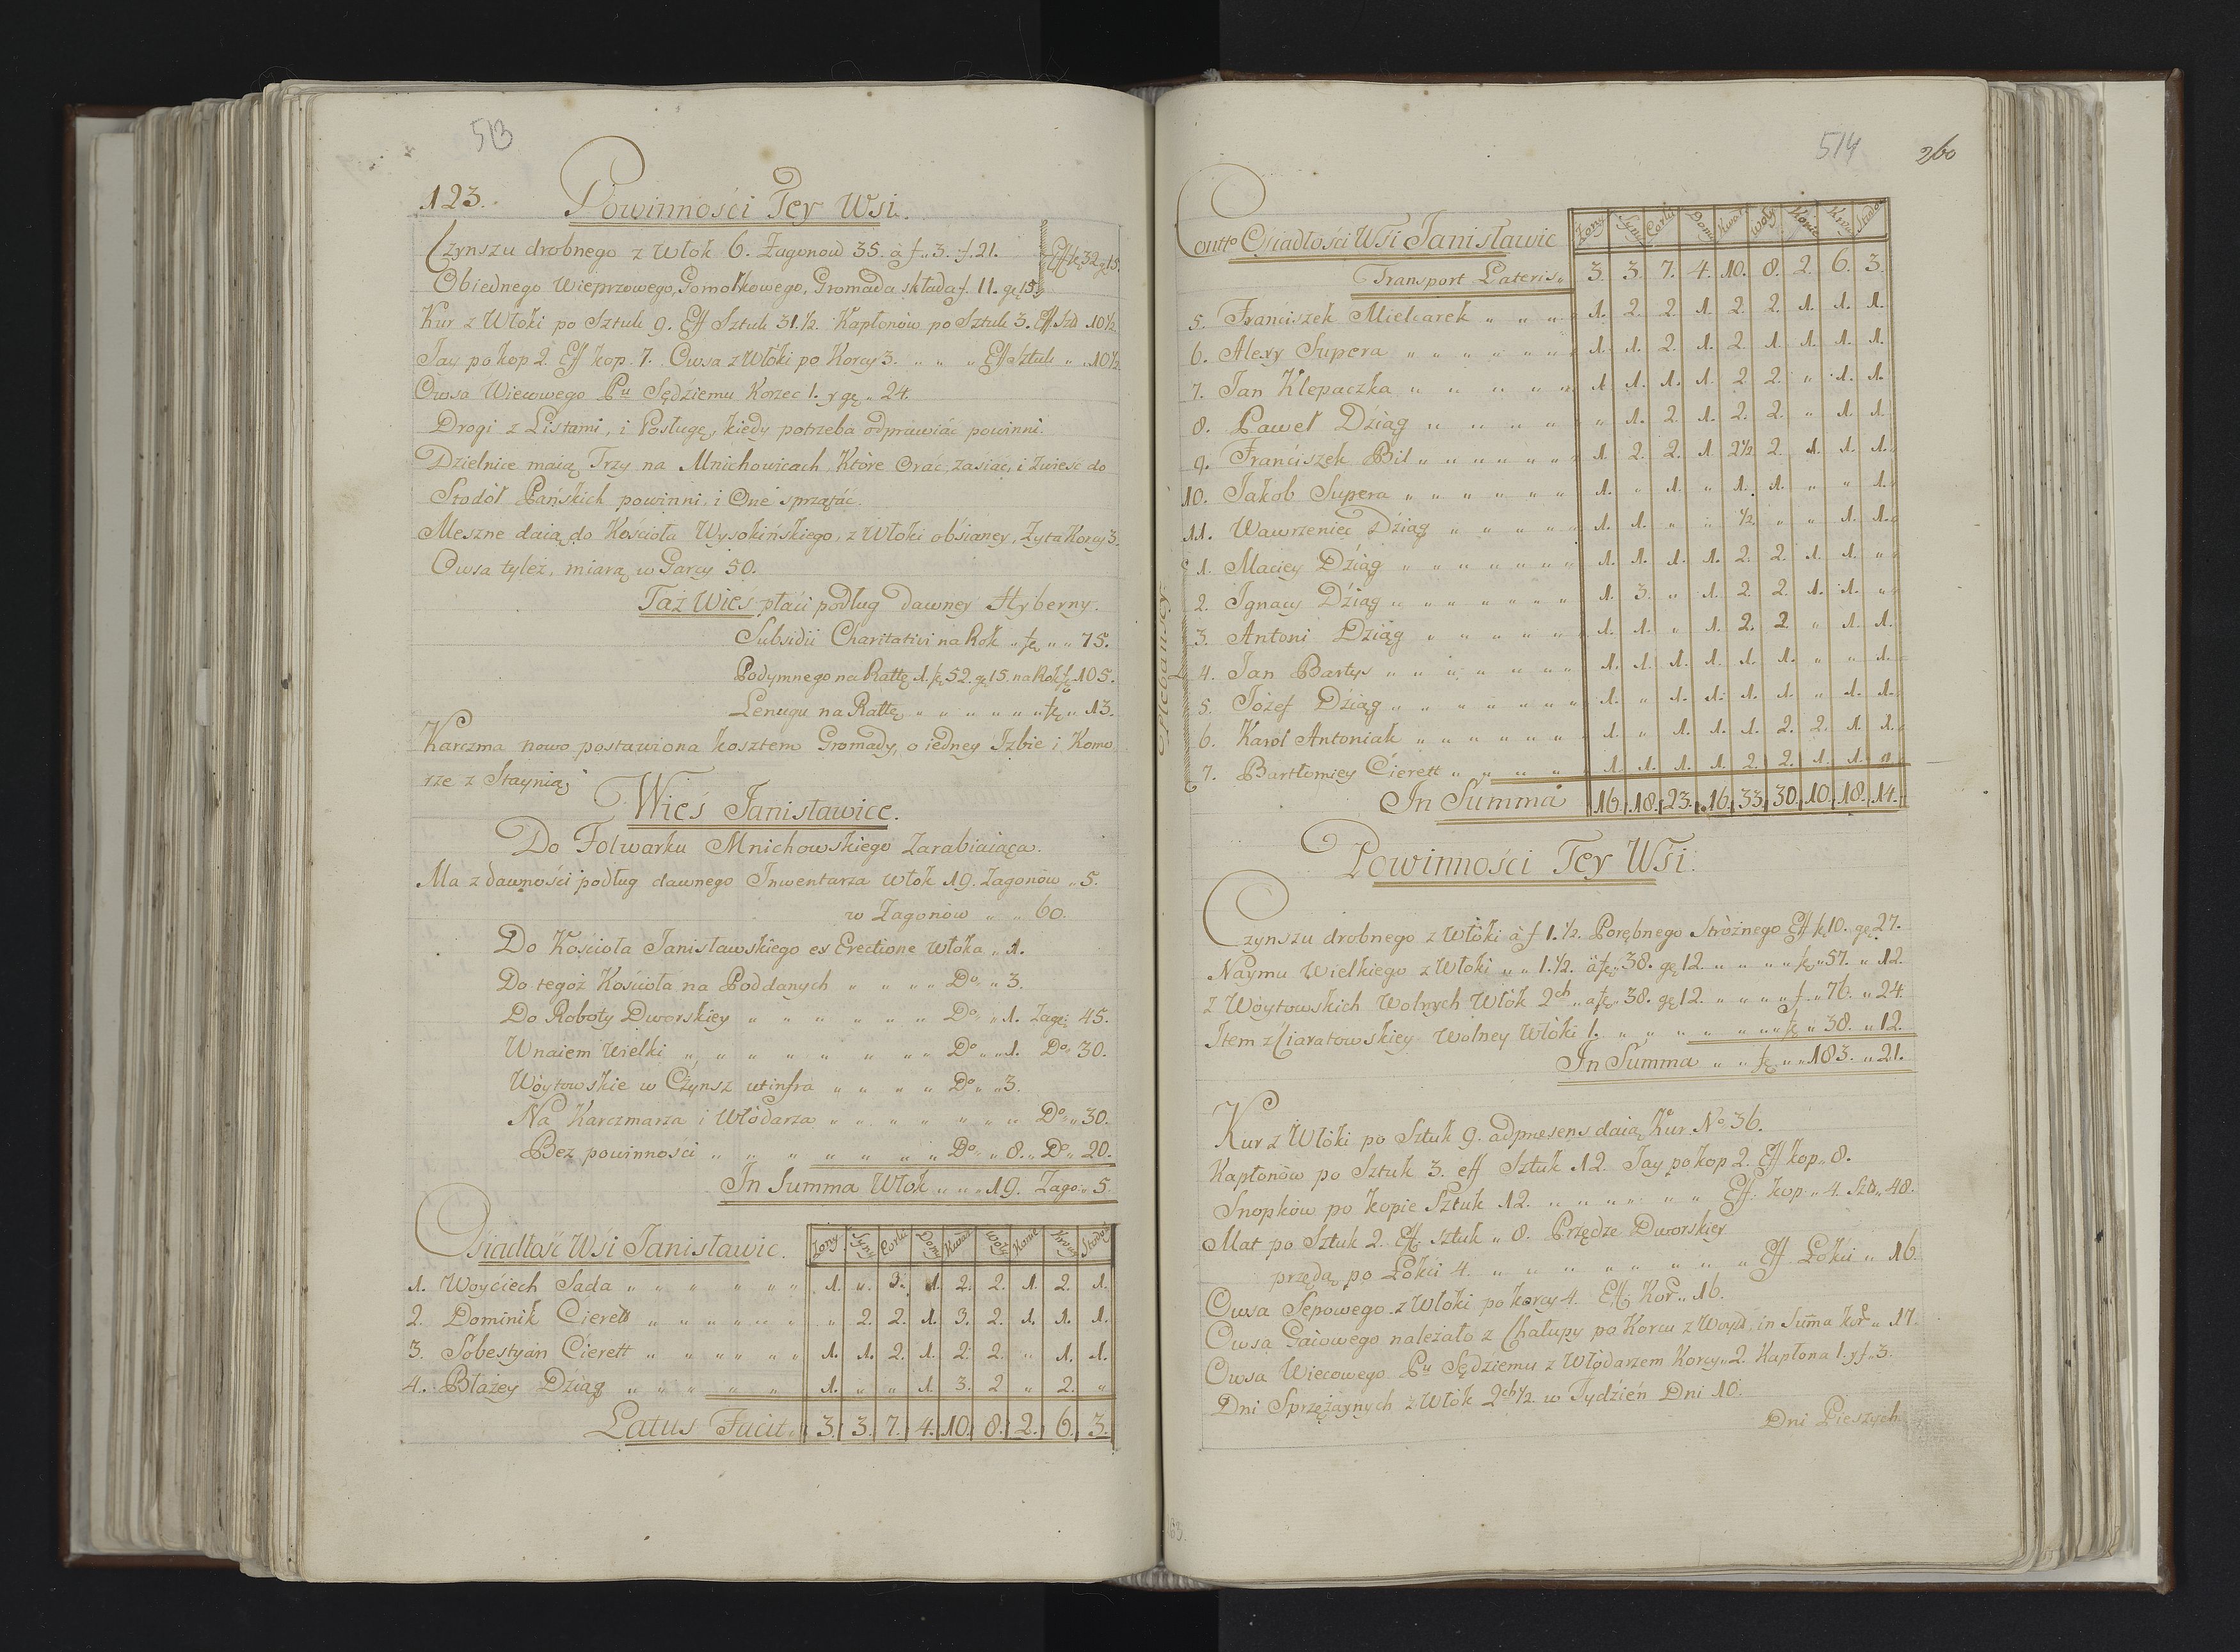 513
123. Powinności Tey Wsi.
Czynszu drobnego z Włok 6. Zagonow 35. à f. 3. f. 21.
Obiednego Wieprzowego, Gomołkowego, Gromada składa f. 11. gę 15
Kur z Włoki po Sztuk 9. Eff Sztuk 31.½. Kapłonów po Sztuk 3. Eff Szt. 10½
Jay po kop 2. Eff kop. 7. Owsa z Włóki po Korcy 3. „ „ „ Eff Sztuk „ 10½
Owsa Wiecowego Pu Sędziemu Korzec 1. y gę „ 24.
Drogi z Listami, i Posługę, kiedy potrzeba odprawiać powinni.
Dzielnice maią Trzy na Mnichowicach, Które Orać, Zasiać, i Zwieść do
Stodół Pańskich powinni, i One sprzątać.
Meszne daią do Kościoła Wysokińskiego, z Włoki obsianey, Żyta Korcy 3.
Owsa tyleż, miarą w Garcy 50.
Taż Wieś płaci podług dawney Hyberny.
Subsidii Charitativi na Rok „ fę „ „ 75.
Podymnego na Rattę 1. fę 52. gę 15. na Rok fę 105.
Lenugu na Rattę „ „ „ „ „ „ fę „ 13.
Karczma nowo postawiona kosztem Gromady, o iedney Izbie i Komo
rze z Staynią,
Wieś Janisławice.
Do Folwarku Mnichowskiego Zarabiaiąca.
Ma z dawności podług dawnego Inwentarza Włok 19. Zagonów „ 5.
w Zagonów „ „ 60.
Do Kościoła Janisławskiego es Erectione Włoka „ 1.
Do tegoż Kościoła na Poddanych „ „ „ „ Do „ „ 3.
Do Roboty Dworskiey „ „ „ „ „ „ Do „ „ 1. Zag: 45.
W naiem Wielki „ „ „ „ „ „ „ „ Do „ „ 1. Do „ 30.
Wóytowskie w Czynsz ut infra „ „ „ „ Do „ „ 3.
Na Karczmarza i Włódarza „ „ „ „ „ „ „ Do „ „ 30.
Bez powinności „ „ „ „ „ „ „ Do „ „ 8. „ Do „ 20.
In Summa Włok „ „ „ 19. Zago: „ 5.
Osiadłość Wsi Janisławic. Zony Syny Corki Domy Kwar Woły Konie Krowy Stodoły
1. Woyciech Sada „ „ „ „ „ „ 1. „ 3. 1. 2. 2. 1. 2. 1.
2. Dominik Cierett „ „ „ „ „ „ „ 2. 2. 1. 3. 2. 1. 1. 1.
3. Sobestyan Cierett „ „ „ „ „ 1. 1. 2. 1. 2. 2. „ 1. 1.
4. Błażey Dziąg „ „ „ „ „ 1. „ „ 1. 3. 2 „ 2. „
Latus Facit „ 3. 3. 7. 4. 10. 8. 2. 6. 3.
514
260
Contto Osiadłości Wsi Janisławic Zony Syny Corki Domy Kwar Woły Konie Krow Stodoł
Transport Lateris „ 3. 3. 7. 4. 10. 8. 2. 6. 3.
5. Franciszek Mielcarek „ „ „ 1. 2. 2. 1. 2. 2. 1. 1. 1.
6. Alexy Supera „ „ „ „ „ „ 1. 1. 2. 1. 2. 1. 1. 1. 1.
7. Jan Klepaczka „ „ „ „ „ 1. 1. 1. 1. 2. 2. „ 1. 1.
8. Paweł Dziąg „ „ „ „ „ „ 1. 2. 1. 2. 2. „ 1. 1.
9. Franciszek Bil „ „ „ „ „ „ 1. 2. 2. 1. 2½. 2. 1. 1. 1.
10. Jakob Supera „ „ „ „ „ „ 1. „ 1. „ 1. 1. „ „ 1.
11. Wawrzeniec Dziąg „ „ „ „ „ 1. 1. „ „ ½ „ „ 1. 1.
Plebańscy
1. Maciey Dziąg „ „ „ „ „ „ „ 1. 1. 1. 1. 2. 2. 1. 1. „
2. Jgnacy Dziąg „ „ „ „ „ „ 1. 3. „ 1. 2. 2. 1. 1. „
3. Antoni Dziąg „ „ „ „ „ „ 1. 1. „ 1. 2. 2. „ 1. 1.
4. Jan Bartys „ „ „ „ „ „ 1. 1. 1. 1. 1. 1. „ „ 1.
5. Józef Dziąg „ „ „ „ „ „ „ 1. „ 1. 1. 1. 1. „ 1. 1.
6. Karol Antoniak „ „ „ „ „ „ 1. „ 1. 1. 1. 2. 2. 1. 1.
7. Bartłomiey Cierett „ „ „ „ 1. 1. 1. 1. 2. 2. 1. 1. „
In Summa 16. 18. 23. 16. 33. 30. 10. 18. 14.
Powinności Tey Wsi.
Czynszu drobnego z Włóki à f 1.½. Porębnego Stróżnego Eff fę 10. gę 27.
Naymu Wielkiego z Włoki „ „ 1.½. à fę „ 38. gę 12. „ „ „ „ fę „ 57. „ 12.
Z Wóytowskich Wolnych Włók 2ch „ à fę „ 38. gę 12. „ „ „ „ f „ 76. „ 24.
Item z Ciaratowskiey Wolney Włóki 1. „ „ „ „ „ „ „ fę „ 38. „ 12.
In Summa „ „ fę „ „ 183. „ 21.
Kur z Włóki po Sztuk 9. ad praesens daią Kur No 36.
Kapłonów po Sztuk 3. eff Sztuk 12. Jay po kop 2. Eff kop „ 8.
Snopków po kopie Sztuk 12. „ „ „ „ „ „ Eff: kop „ 4. Szt „ 48.
Mat po Sztuk 2. Eff: sztuk „ 8. Przędze Dworskiey
przędą po Łokci 4. „ „ „ „ „ „ „ „ Eff Łokci „ 16.
Owsa Sepowego z Włóki po korcy 4. Eff: Kor „ 16.
Owsa Gaiowego należało z Chałupy po Korcu z Woyt. in Suma kor „ 17.
Owsa Wiecowego Pu Sędziemu z Włódarzem Korcy „ 2. Kapłona 1. y f „ 3.
Dni Sprzężaynych z Włók 2ch ½ w Tydzień Dni 10.
Dni Pieszych